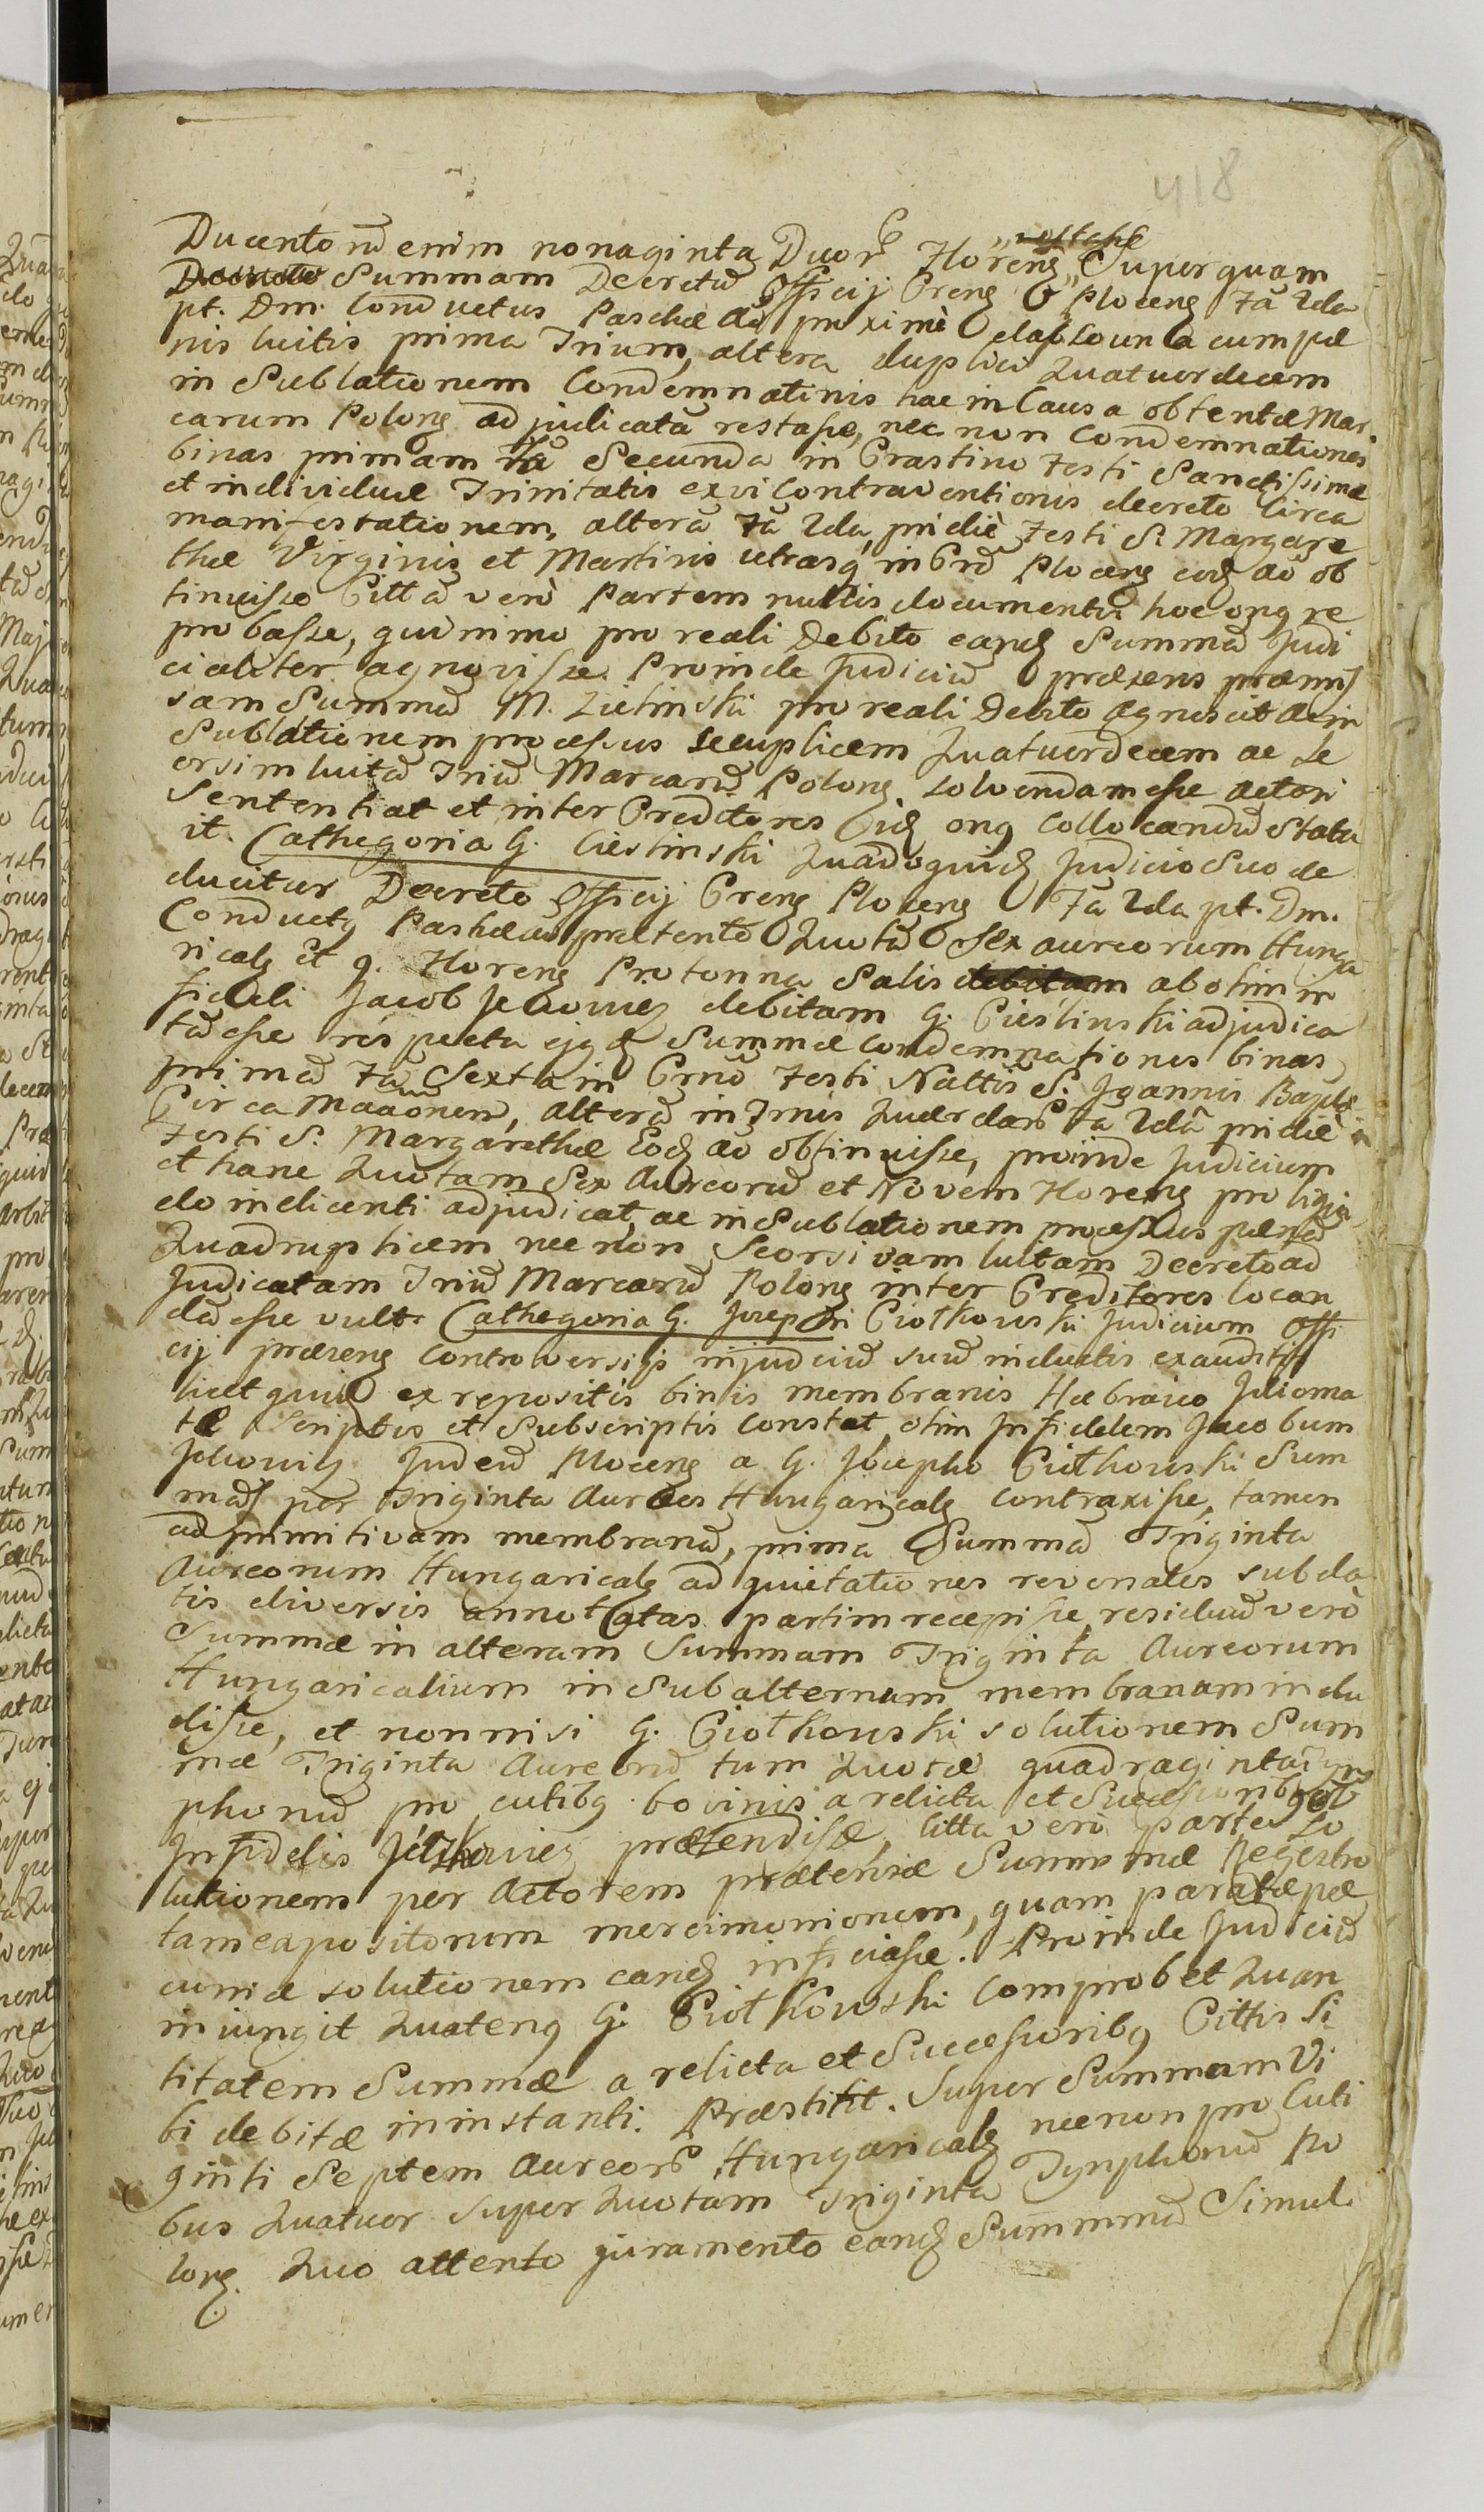 418
Ducentorũ enim nonaginta Duorũ Florenõ restasse Super quam
Decreto Summam Decretũ Officij Crenõ Plocenõ Fã 2da
pt. Dm. Conductus Paschæ Aõ proximè elapso una cum pæ
nis luitis prima Trium, altera duplici Quatuordecem
in Sublationem Condemnatinis hac in Causa obtentæ Mar
carum Polonõ adjudicatã restasse, nec non Condemnationes
binas primam fã Secunda in Crastino Festi Sanctissimæ
et individuæ Trinitatis ex vi Contraventionis decreto Circa
manifestationem, alterã Fã 2da pridiè Festi S. Margare
thæ Virginis et Martiris utrasq in Crõ Plocenõ eod aõ ob
tinuisse Citta verò Partem nullis documentis hoc onq re
probasse, quinimo pro reali Debito eand Summã Judi
cialiter agnovisse. Proinde Judiciũ præsens præmis
sam Summã M. Zielinski pro reali Debito agnoscit ac in
Sublationem processus secuplicem Quatuordecem ac se
orsim luitã Triũ Marcarũ Polonõ solvendam esse actori
Sententiat et inter Creditores Ejd onq Collocandũ Statu
it. Cathegoria G. Ciestinski Quadoquid Judicio Suo de
ducitur Decreto Officij Crenõ Plocenõ Fã 2da pt. Dm.
Conductq Paschæ aõ prætento Quotã Sex aureorum Hunga
ricalõ et 9. Florenõ Pro tonna Salis debitam ab olim in
fideli Jacob Jelowicz debitam G. Ciestinski adjudica
tã esse respectu ejqd Summæ Condemnationes binas
primã Fã Sexta in Crnõ Festi Natltis S. Joannis Bapte
Circa Maaõnem, alterã in Trnis Querelarũ Fã 2dã pridie
Festi S. Margarethæ Eod aõ obtinuisse, proinde Judicium
et hanc Quotam Sex Aureorũ et Novem Florenõ pro liqui
do melicenti adjudicat, ac in Sublationem processus pænã
Quadruplicem nec non Seorsivam luitam Decreto ad
Judicatam Triũ Marcarũ Polonõ inter Creditores locan
dã esse vult. Cathegoria G. Josephi Ciotkowski Judicium Offi
cij præsens Controversijs in judiciũ suũ inductis exauditis
licet quid ex repositis binis membranis Hæbraico Jdioma
te Scriptis et Subscriptis Constat, olim Jnfidelem Jacobum
Jelowicz Judeũ Plocenõ a G. Josepho Ciotkowski Sum
mas per Triginta Aureos Hungaricalõ contraxisse, tamen
ad primitivam membranã, prima Summã Triginta
Aureorum Hungaricalõ ad quietationes reconales sub da
tis diversis annotatas partim recepisse, residuũ verò
Summæ in alteram Summam Triginta Aureorum
Hungaricalium in Subalternam membranam inclu
disse, et nonnisi G. Ciotkowski solutionem Sum
mæ Triginta Aureorũ tum Quotæ quadraginta Tym
phonũ pro cutibq bovinis a relicta et Successoribq ol
Jnfidelis Jelowicz prætendisse, Citta verò parte So
lutionem per Actorem prætensæ Summæ Regestro
tam expositorum mercimoniorum, quam paratæ pe
cuniæ solutionem eand inficiasse. Proinde Judiciũ
iniungit Quatenq G. Ciotkowski Comprobet Quan
titatem Summæ a relicta et Successoribq Cittis Si
bi debitæ in instanti. Præstitit. Super Summam Vi
ginti Septem Aureorũ Hungaricalõ nec non pro Cuti
bus Quatuor super Quotam Triginta Tynphonũ Po
lonõ. Quo attento juramento eand Summã Simul